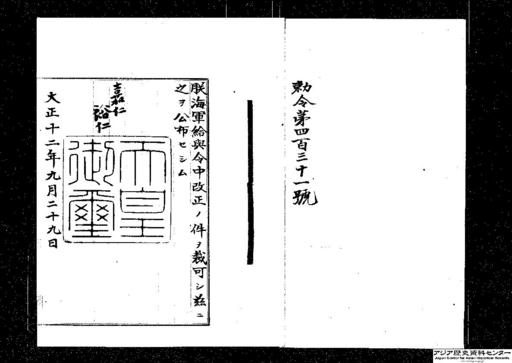 勅令第四百三十一號
朕海軍給與令中改正ノ件ヲ裁可シ茲ニ
之ヲ公布セシム
嘉仁
裕仁
天皇御璽
大正十二年九月二十九日
アジア歴史資料センター
Japan Center for Asian Historical Records